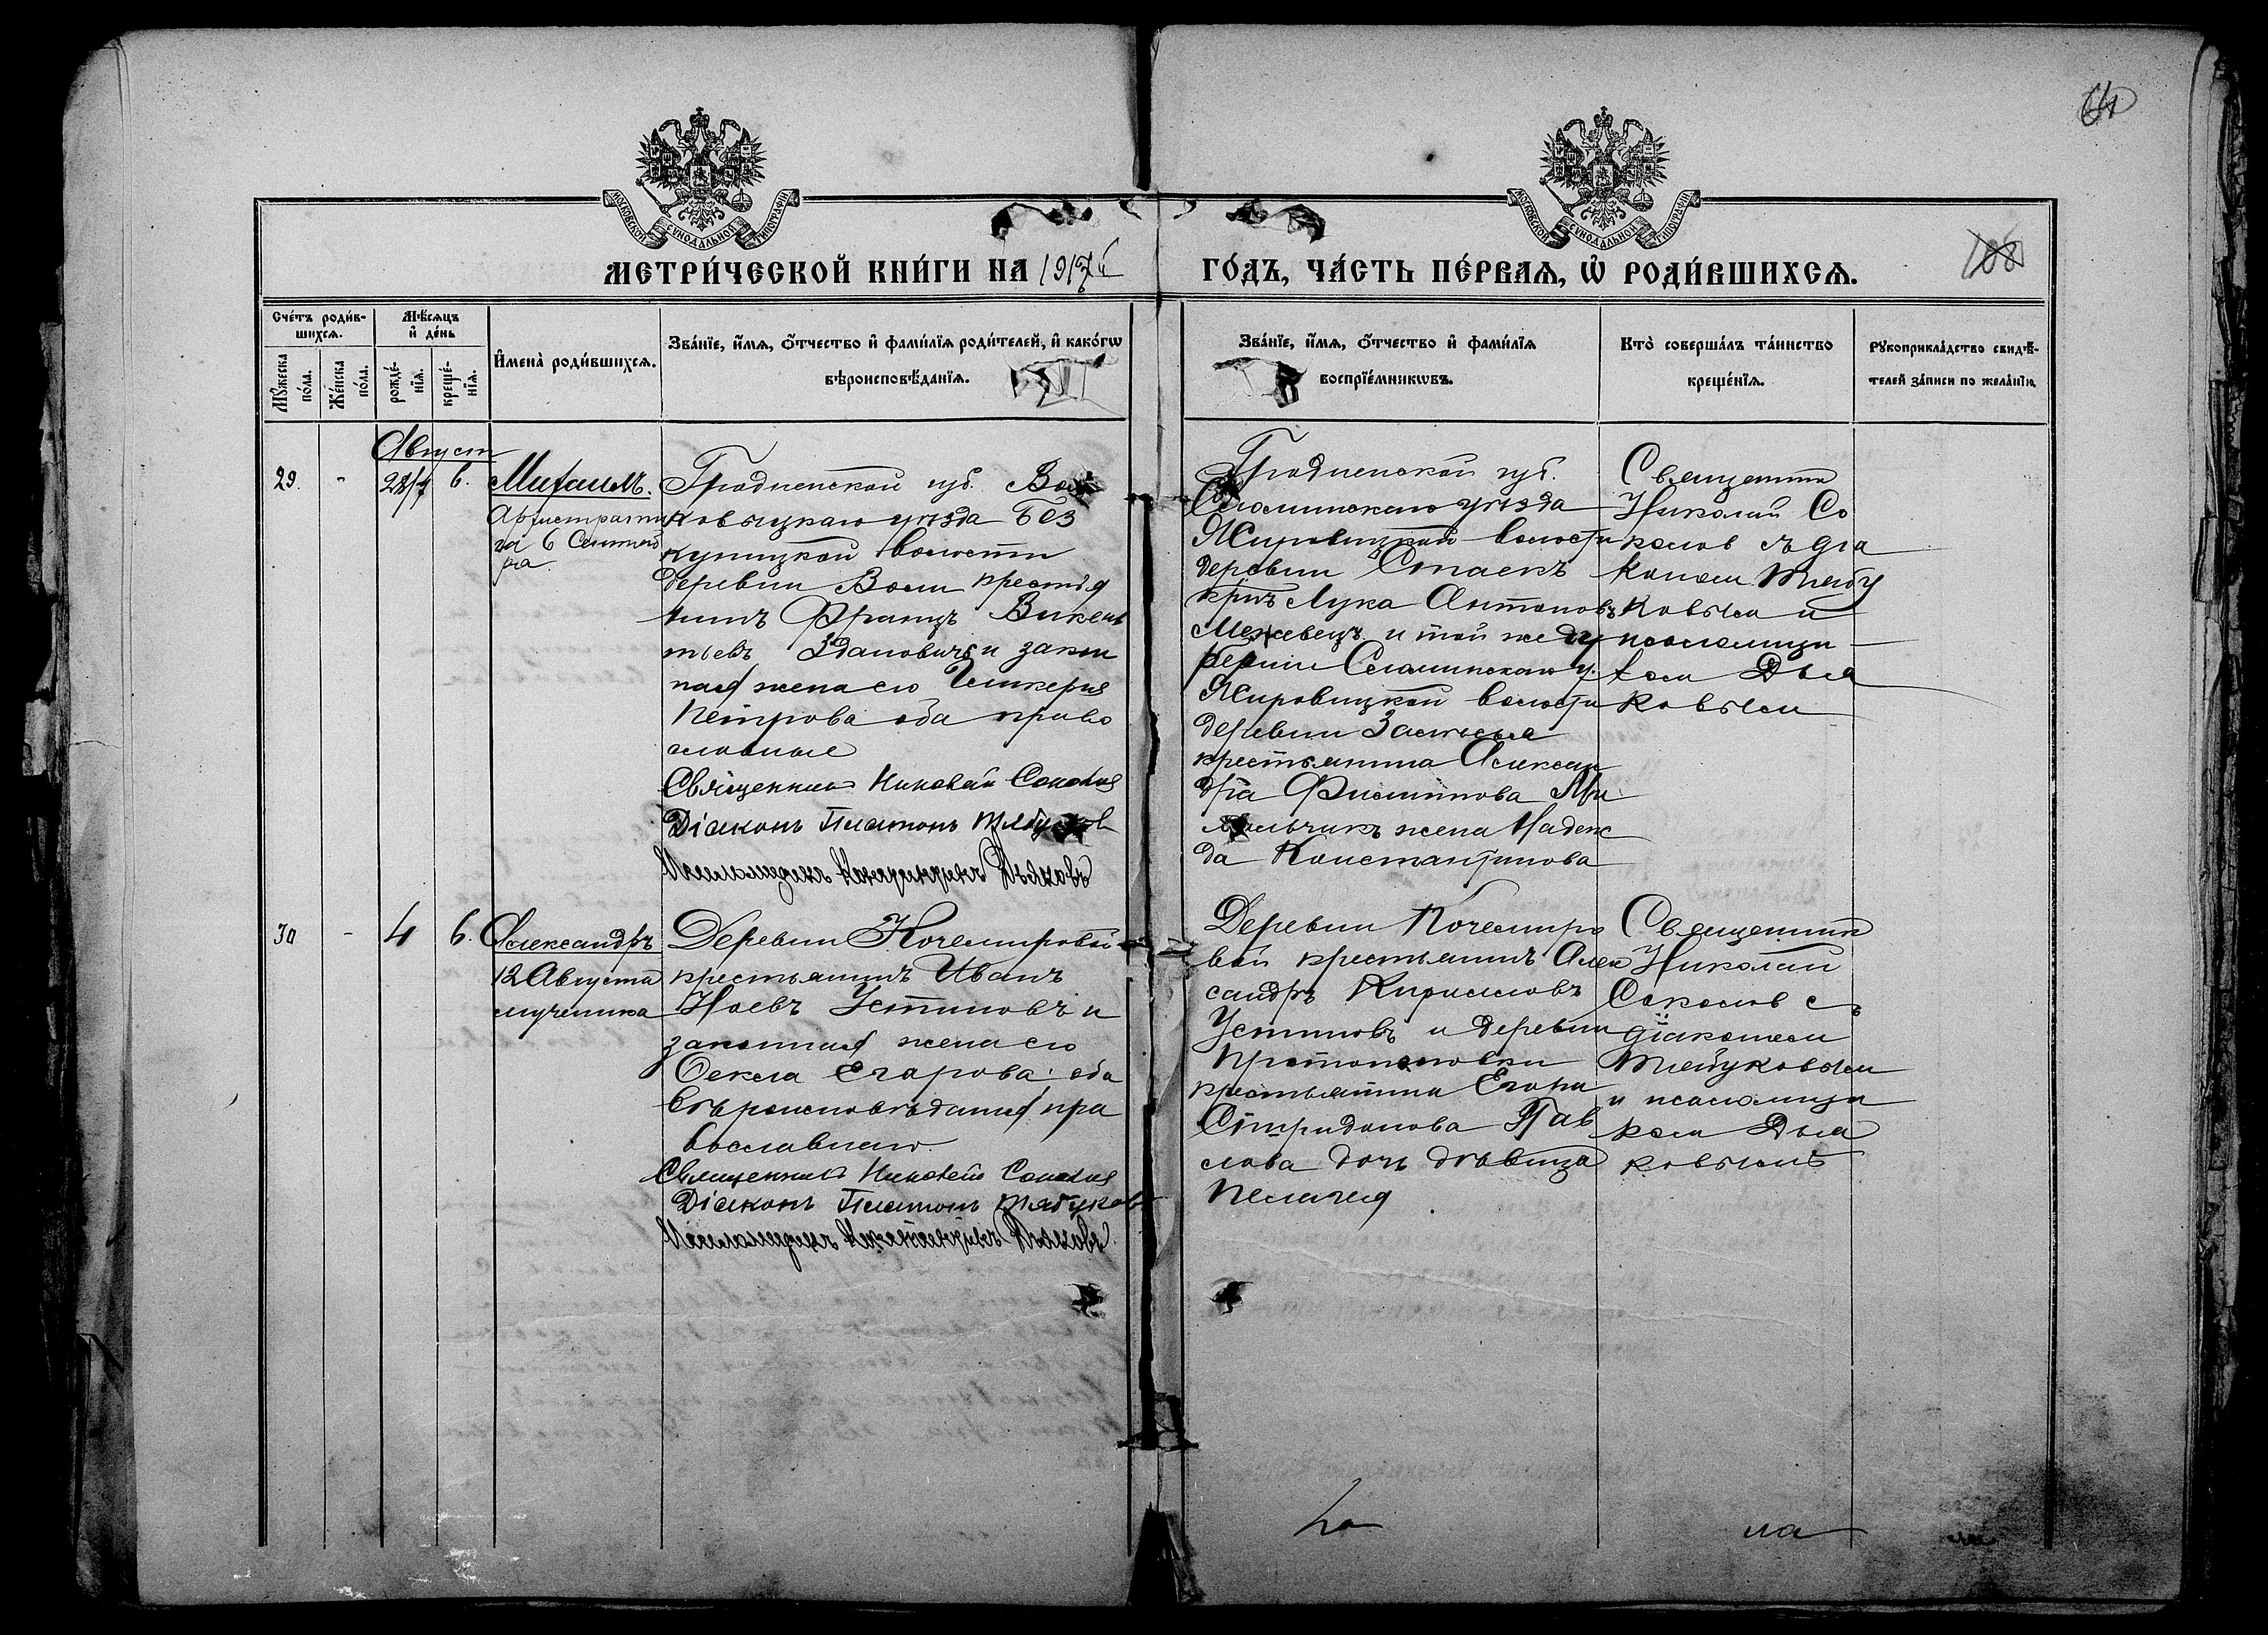 64
МОСКОВСКОЙ СѴНОДАЛЬНОЙ ТИПОГРАФІИ
МОСКОВСКОЙ СѴНОДАЛЬНОЙ ТИПОГРАФІИ
МЕТРИ́ЧЕСКОЙ КНИ́ГИ НА 1917й
ГО́ДЪ, ЧА́СТЬ ПЕ́РВАЯ, Ѡ РОДИ́ВШИХСЯ.
108
Сче́тъ роди́в-
шихся.
Мѣ́сяцъ
и де́нь
Му́жеска
по́ла.
Же́нска
по́ла.
рожде́-
нїя.
креще́-
нїя.
И́мена̀ роди́вшихся.
Зва́нїе, и́мя, ѻ҆́тчество и фами́лїя роди́телей, и како́гѡ
вѣроисповѣ́данїя.
Зва́нїе, и́мя, ѻ҆́тчество и фами́лїя
воспрїе́мникѡвъ.
Кто̀ соверша́лъ та́инство
креще́нїя.
Рꙋкоприкла́дство свидѣ́-
телей за́писи по жела́нїю.
Август
29. - 28/7 6. Михаилъ.
Архистрати
га 6 Сентяб
ря
Гродненской губ. Вол
ковыцкаго уѣзда Без
купицкой волости
деревни Воли крестья
нинъ Францъ Викень
тьевъ Здановичъ и закон
ная жена его Гликерия
Петрова оба право
славные
Священникъ Николай Соколов
Діаконъ Платонъ Тябуков
Псаломщикъ Дьяковъ
Гродненской губ.
Слонимскаго уѣзда
Жировицкой волости
деревни Стаекъ
крнъ Лука Антоновъ
и той же гу
бернии Слонимскаго у.
Жировицкой волости
деревни Залѣсья
крестьянина Алексан
дра Филиппова
жена Надеж
да Константинова
Священник
Николай Со
колов съ діа
коном Тябу
ковым и
псаломщи
ком Дья
ковым
30 - 4 6. Александръ
12 Августа
мученика
Деревни Кочемировой
крестьянинъ Иванъ
Ноевъ Устиновъ и
законная жена его
Фекла Егорова оба
вѣроисповѣдания пра
вославнаго.
Священник Николай Соколов
Діаконъ Платонъ Тябуков
Псаломщикъ Дьяковъ.
Деревни Кочемиро
вой крестьянинъ Алек
сандръ Кирилловъ
Устиновъ и деревни
крестьянина Егора
Спиридонова Пав
лова дочь дѣвица
Пелагея
Священник
Николай
Соколов съ
діаконом
Тябуковым
и псаломщи
ком Дья
ковымъ
по
ла